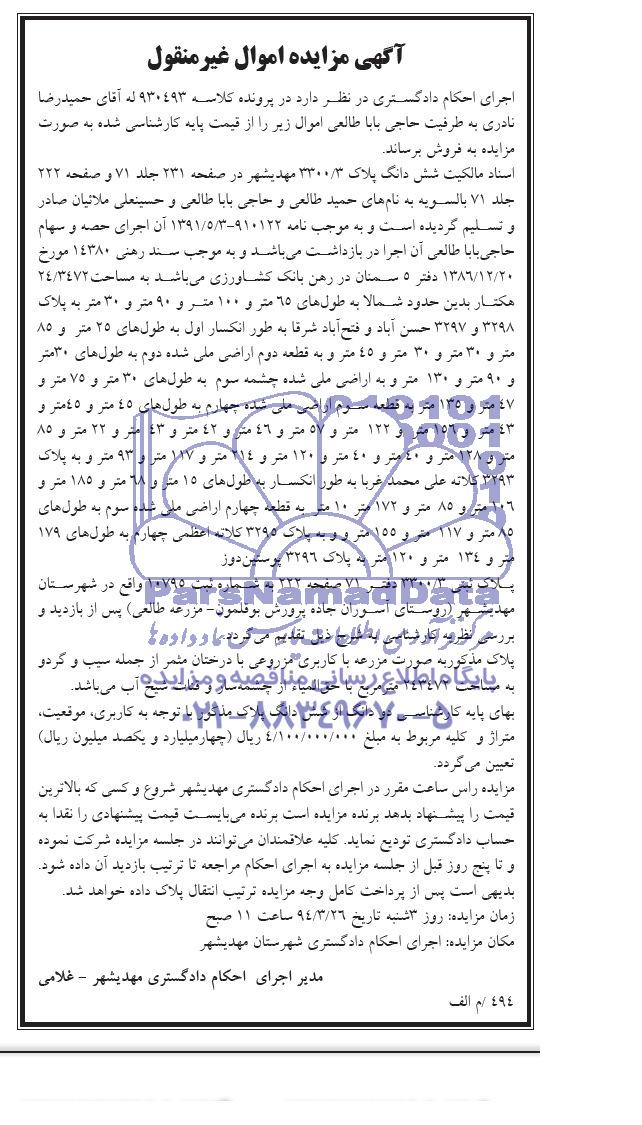 آگهی مزایده اموال غیرمنقول
اجرای احکام دادگستری در نظر دارد در پرونده کلاسه ۹۳۰۴۹۳ له آقای حمیدرضا
نادری به طرفیت حاجی بابا طالعی اموال زیر را از قیمت پایه کارشناسی شده به صورت
مزایده به فروش برساند.
اسناد مالکیت شش دانگ پلاک ۳۳۰۰/۳ مهدیشهر در صفحه ۲۳۱ جلد ۷۱ و صفحه ۲۲۲
جلد ۷۱ بالسویه به نام‌های حمید طالعی و حاجی بابا طالعی و حسینعلی ملائیان صادر
و تسلیم گردیده است و به موجب نامه ۹۱۰۱۲۲-۱۳۹۱/۵/۳ آن اجرای حصه و سهام
حاجی‌بابا طالعی آن اجرا در بازداشت می‌باشد و به موجب سند رهنی ۱۴۳۸۰ مورخ
۱۳۸۶/۱۲/۲۰ دفتر ۵ سمنان در رهن بانک کشاورزی می‌باشد به مساحت ۲۴/۳۴۷۲
هکتار بدین حدود شمالا به طول‌های ۶۵ متر و ۱۰۰ متر و ۹۰ متر و ۳۰ متر به پلاک
۳۲۹۸ و ۳۲۹۷ حسن آباد و فتح‌آباد شرقا به طور انکسار اول به طول‌های ۲۵ متر و ۸۵
متر و ۳۰ متر و ۳۰ متر و ۴۵ متر و به قطعه دوم اراضی ملی شده دوم به طول‌های ۳۰متر
و ۹۰ متر و ۱۳۰ متر و به اراضی ملی شده چشمه سوم به طول‌های ۳۰ متر و ۷۵ متر و
۴۷ متر و ۱۳۵ متر به قطعه سوم اراضی ملی شده چهارم به طول‌های ۴۵ متر و ۴۵متر و
۴۳ متر و ۱۵۶ متر و ۱۲۲ متر و ۵۷ متر و ۴۶ متر و ۴۲ متر و ۴۳ متر و ۲۲ متر و ۸۵
متر و ۱۲۸ متر و ۴۰ متر و ۴۰ متر و ۱۲۰ متر و ۲۱۴ متر و ۱۱۷ متر و ۹۳ متر و به پلاک
۳۲۹۳ کلاته علی محمد غربا به طور انکسار به طول‌های ۱۵ متر و ۶۸ متر و ۱۸۵ متر و
۱۰۶ متر و ۸۵ متر و ۱۷۲ متر ۱۰ متر به قطعه چهارم اراضی ملی شده سوم به طول‌های
۸۵ متر و ۱۱۷ متر و ۱۵۵ متر و و به پلاک ۳۲۹۵ کلاته اعظمی چهارم به طول‌های ۱۷۹
متر و ۱۳۴ متر و ۱۲۰ متر به پلاک ۳۲۹۶ پوستین‌دوز
پلاک ثبتی ۳۳۰۰/۳ دفتر ۷۱ صفحه ۲۲۲ به شماره ثبت ۱۰۷۹۵ واقع در شهرستان
مهدیشهر (روستای آسوران جاده پرورش بوقلمون- مزرعه طالعی) پس از بازدید و
بررسی نظریه کارشناسی به شرح ذیل تقدیم می‌گردد.
پلاک مذکور به صورت مزرعه با کاربری مزروعی با درختان مثمر از جمله سیب و گردو
به مساحت ۱۴۳۴۷۲ مترمربع با حق‌المیاه از چشمه‌سار و قنات شیخ آب می‌باشد.
بهای پایه کارشناسی دو دانگ از شش دانگ پلاک مذکور با توجه به کاربری، موقعیت،
متراژ و کلیه مربوط به مبلغ ۴/۱۰۰/۰۰۰/۰۰۰ ریال (چهارمیلیارد و یکصد میلیون ریال)
تعیین می‌گردد.
مزایده راس ساعت مقرر در اجرای احکام دادگستری مهدیشهر شروع و کسی که بالاترین
قیمت را پیشنهاد بدهد برنده مزایده است برنده می‌بایست قیمت پیشنهادی را نقدا به
حساب دادگستری تودیع نماید. کلیه علاقمندان می‌توانند در جلسه مزایده شرکت نموده
و تا پنج روز قبل از جلسه مزایده به اجرای احکام مراجعه تا ترتیب بازدید آن داده شود.
بدیهی است پس از پرداخت کامل وجه مزایده ترتیب انتقال پلاک داده خواهد شد.
زمان مزایده: روز ۳شنبه تاریخ ۹۴/۳/۲۶ ساعت ۱۱ صبح
مکان مزایده: اجرای احکام دادگستری شهرستان مهدیشهر
مدیر اجرای احکام دادگستری مهدیشهر - غلامی
۴۹۴ /م الف
ParsNamadData
پایگاه اطلاع رسانی مناقصه و مزایده
۰۲۱-۸۸۳۴۹۶۷۰-۵